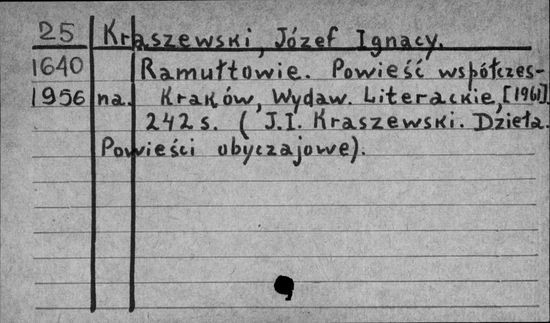 25 Kraszewski, Józef Ignacy.
1640 Ramułtowie. Powieść współczes-
1956 na. Kraków, Wydaw. Literackie, [1961]
242 s. ( J.I. Kraszewski. Dzieła.
Powieści obyczajowe).